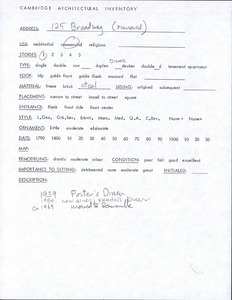 CAMBRIDGE ARCHITECTURAL INVENTORY
ADDRESS: 125 Broadway (removed)
USE: residential commercial religious
STORIES: 1 2 3 4 5
Diner
TYPE: single double row duplex decker double d tenement apartment
ROOF: hip gable front gable flank mansard flat
MATERIAL: frame brick steel SIDING: original subsequent
PLACEMENT: narrow to street broad to street square
ENTRANCE: flank front side front center
ORNAMENT: little moderate elaborate
DATE: 1790 1800 10 20 30 40 50 60 70 80 90 1900 10 20 30
MAP:
REMODELING: drastic moderate minor CONDITION: poor fair good excellent
IMPORTANCE TO SETTING: detrimental none moderate great INITIALED:
DESCRIPTION:
1939 Foster's Diner
new diner: Kendall Diner
ca 1969 moved to